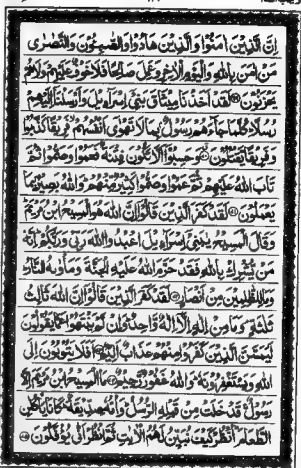 إِنَّ الَّذِينَ اٰمَنُوْا وَالَّذِينَ هَادُوْا وَالصّٰبِـُٔوْنَ وَالنَّصٰرٰى
مَنْ اٰمَنَ بِاللّٰهِ وَالْيَوْمِ الْاٰخِرِ وَعَمِلَ صَالِحًا فَلَا خَوْفٌ عَلَيْهِمْ وَلَا هُمْ
يَحْزَنُوْنَ لَقَدْ اَخَذْنَا مِيْثَاقَ بَنِيْ اِسْرَآءِيْلَ وَاَرْسَلْنَا اِلَيْهِمْ
رُسُلًا كُلَّمَا جَآءَهُمْ رَسُوْلٌ بِمَا لَا تَهْوٰى اَنْفُسُهُمْ فَرِيْقًا كَذَّبُوْا
وَفَرِيْقًا يَقْتُلُوْنَ وَحَسِبُوْا اَلَّا تَكُوْنَ فِتْنَةٌ فَعَمُوْا وَصَمُّوْا ثُمَّ
تَابَ اللّٰهُ عَلَيْهِمْ ثُمَّ عَمُوْا وَصَمُّوْا كَثِيْرٌ مِّنْهُمْ وَاللّٰهُ بَصِيْرٌ بِمَا
يَعْمَلُوْنَ لَقَدْ كَفَرَ الَّذِيْنَ قَالُوْا اِنَّ اللّٰهَ هُوَ الْمَسِيْحُ ابْنُ مَرْيَمَ
وَقَالَ الْمَسِيْحُ يٰبَنِيْ اِسْرَآءِيْلَ اعْبُدُوا اللّٰهَ رَبِّيْ وَرَبَّكُمْ اِنَّهٗ
مَنْ يُّشْرِكْ بِاللّٰهِ فَقَدْ حَرَّمَ اللّٰهُ عَلَيْهِ الْجَنَّةَ وَمَأْوٰىهُ النَّارُ
وَمَا لِلظّٰلِمِيْنَ مِنْ اَنْصَارٍ لَقَدْ كَفَرَ الَّذِيْنَ قَالُوْا اِنَّ اللّٰهَ ثَالِثُ
ثَلٰثَةٍ وَمَا مِنْ اِلٰهٍ اِلَّا اِلٰهٌ وَّاحِدٌ وَاِنْ لَّمْ يَنْتَهُوْا عَمَّا يَقُوْلُوْنَ
لَيَمَسَّنَّ الَّذِيْنَ كَفَرُوْا مِنْهُمْ عَذَابٌ اَلِيْمٌ اَفَلَا يَتُوْبُوْنَ اِلَى
اللّٰهِ وَيَسْتَغْفِرُوْنَهٗ وَاللّٰهُ غَفُوْرٌ رَّحِيْمٌ مَا الْمَسِيْحُ ابْنُ مَرْيَمَ اِلَّا
رَسُوْلٌ قَدْ خَلَتْ مِنْ قَبْلِهِ الرُّسُلُ وَاُمُّهٗ صِدِّيْقَةٌ كَانَا يَأْكُلٰنِ
الطَّعَامَ اُنْظُرْ كَيْفَ نُبَيِّنُ لَهُمُ الْاٰيٰتِ ثُمَّ انْظُرْ اَنّٰى يُؤْفَكُوْنَ